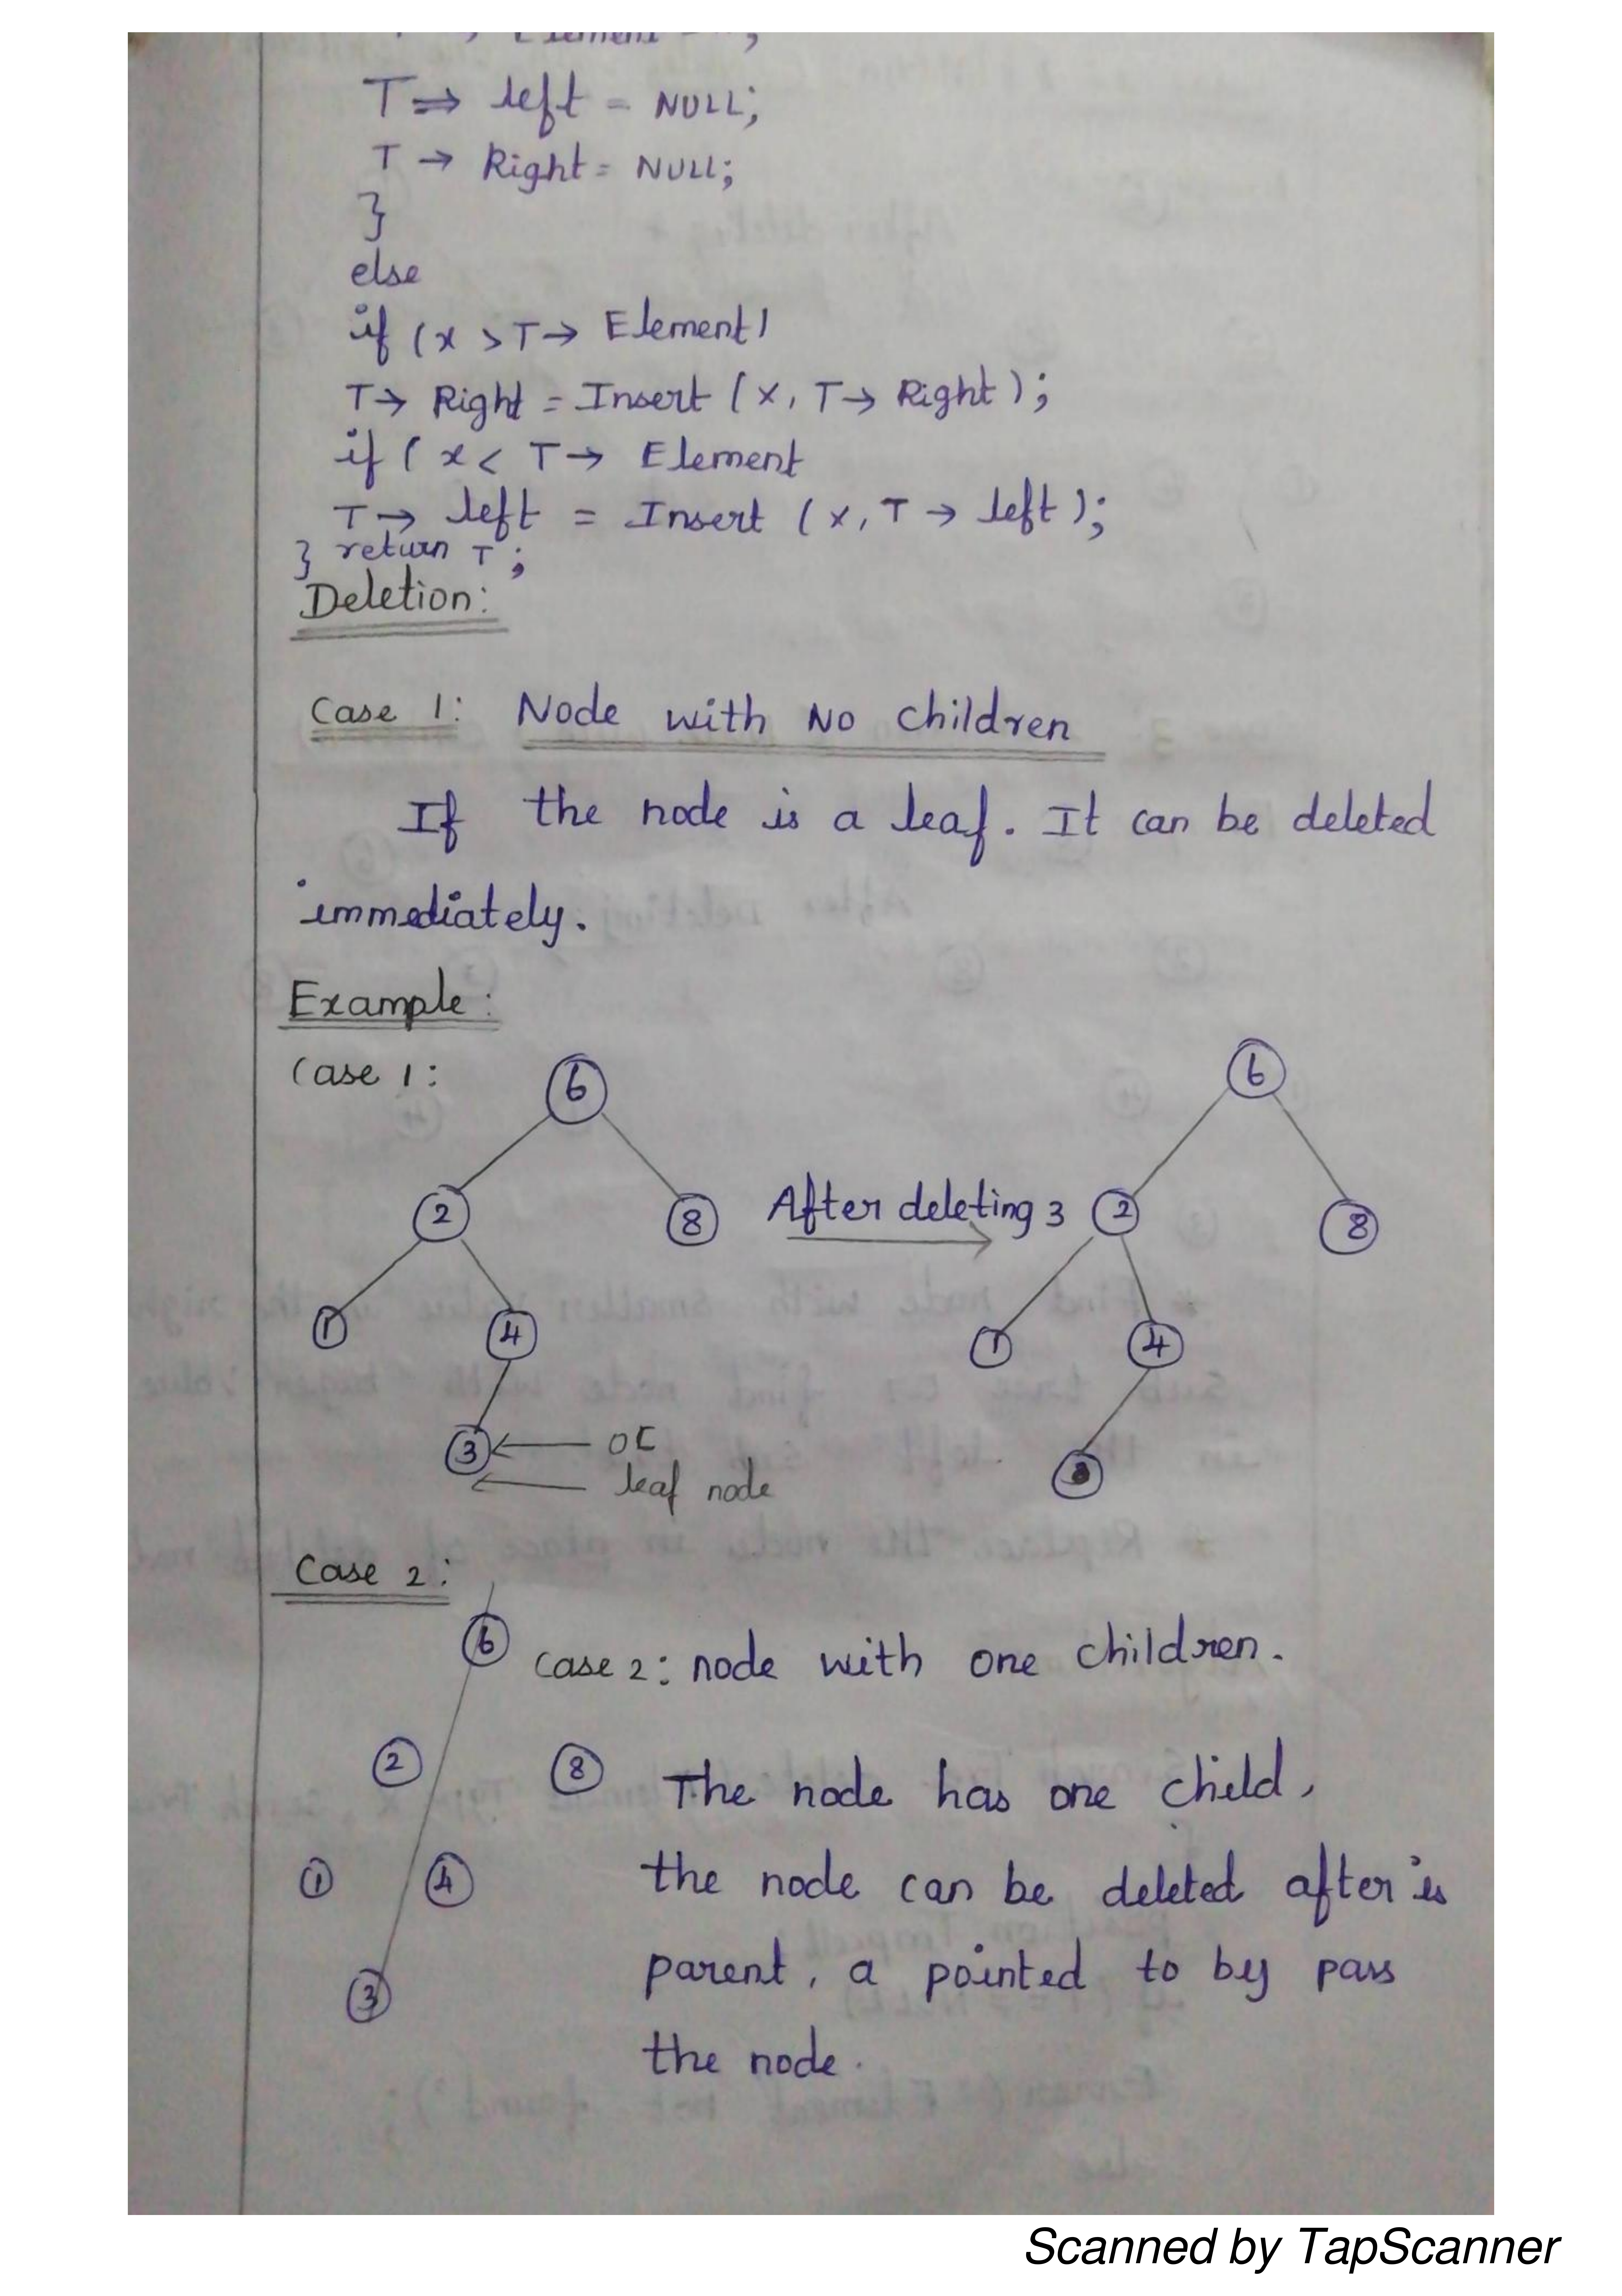 Element
T ⇒ left = NULL;
T → Right = NULL;
}
else
if (x > T → Element)
T → Right = Insert (x, T → Right);
if ( x < T → Element
T → left = Insert (x, T → left);
} return T ;
Deletion:
Case 1: Node with No children
If the node is a leaf. It can be deleted
immediately.
Example:
Case 1:
6
6
2
8
After deleting 3
2
8
1
4
1
4
3 ← 0C
← leaf node
Case 2:
6
Case 2: node with one children.
2
8
The node has one child,
1
4
the node can be deleted after is
3
parent, a pointed to by pass
the node.
Scanned by TapScanner